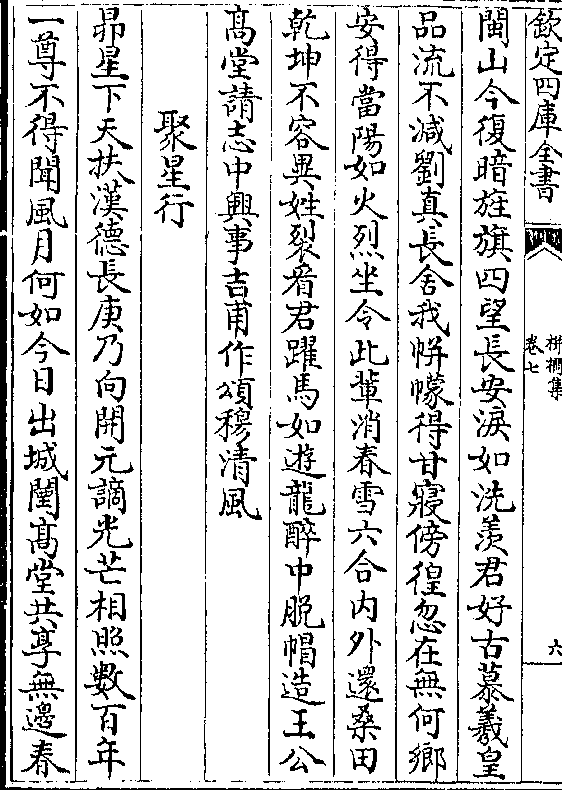 欽定四庫全書
栟櫚集
卷七
六
閩山今復暗旌旗四望長安淚如洗羨君好古慕羲皇
品流不減劉真長舍我帡幪得甘寢傍徨忽在無何鄉
安得當陽如火烈坐令此輩消春雪六合内外還桑田
乾坤不容異姓裂看君躍馬如遊龍醉中脱帽造王公
髙堂請志中興事吉甫作頌穆清風
聚星行
昴星下天扶漢德長庚乃向開元謫光芒相照數百年
一尊不得聞風月何如今日出城闉髙堂共享無邊春